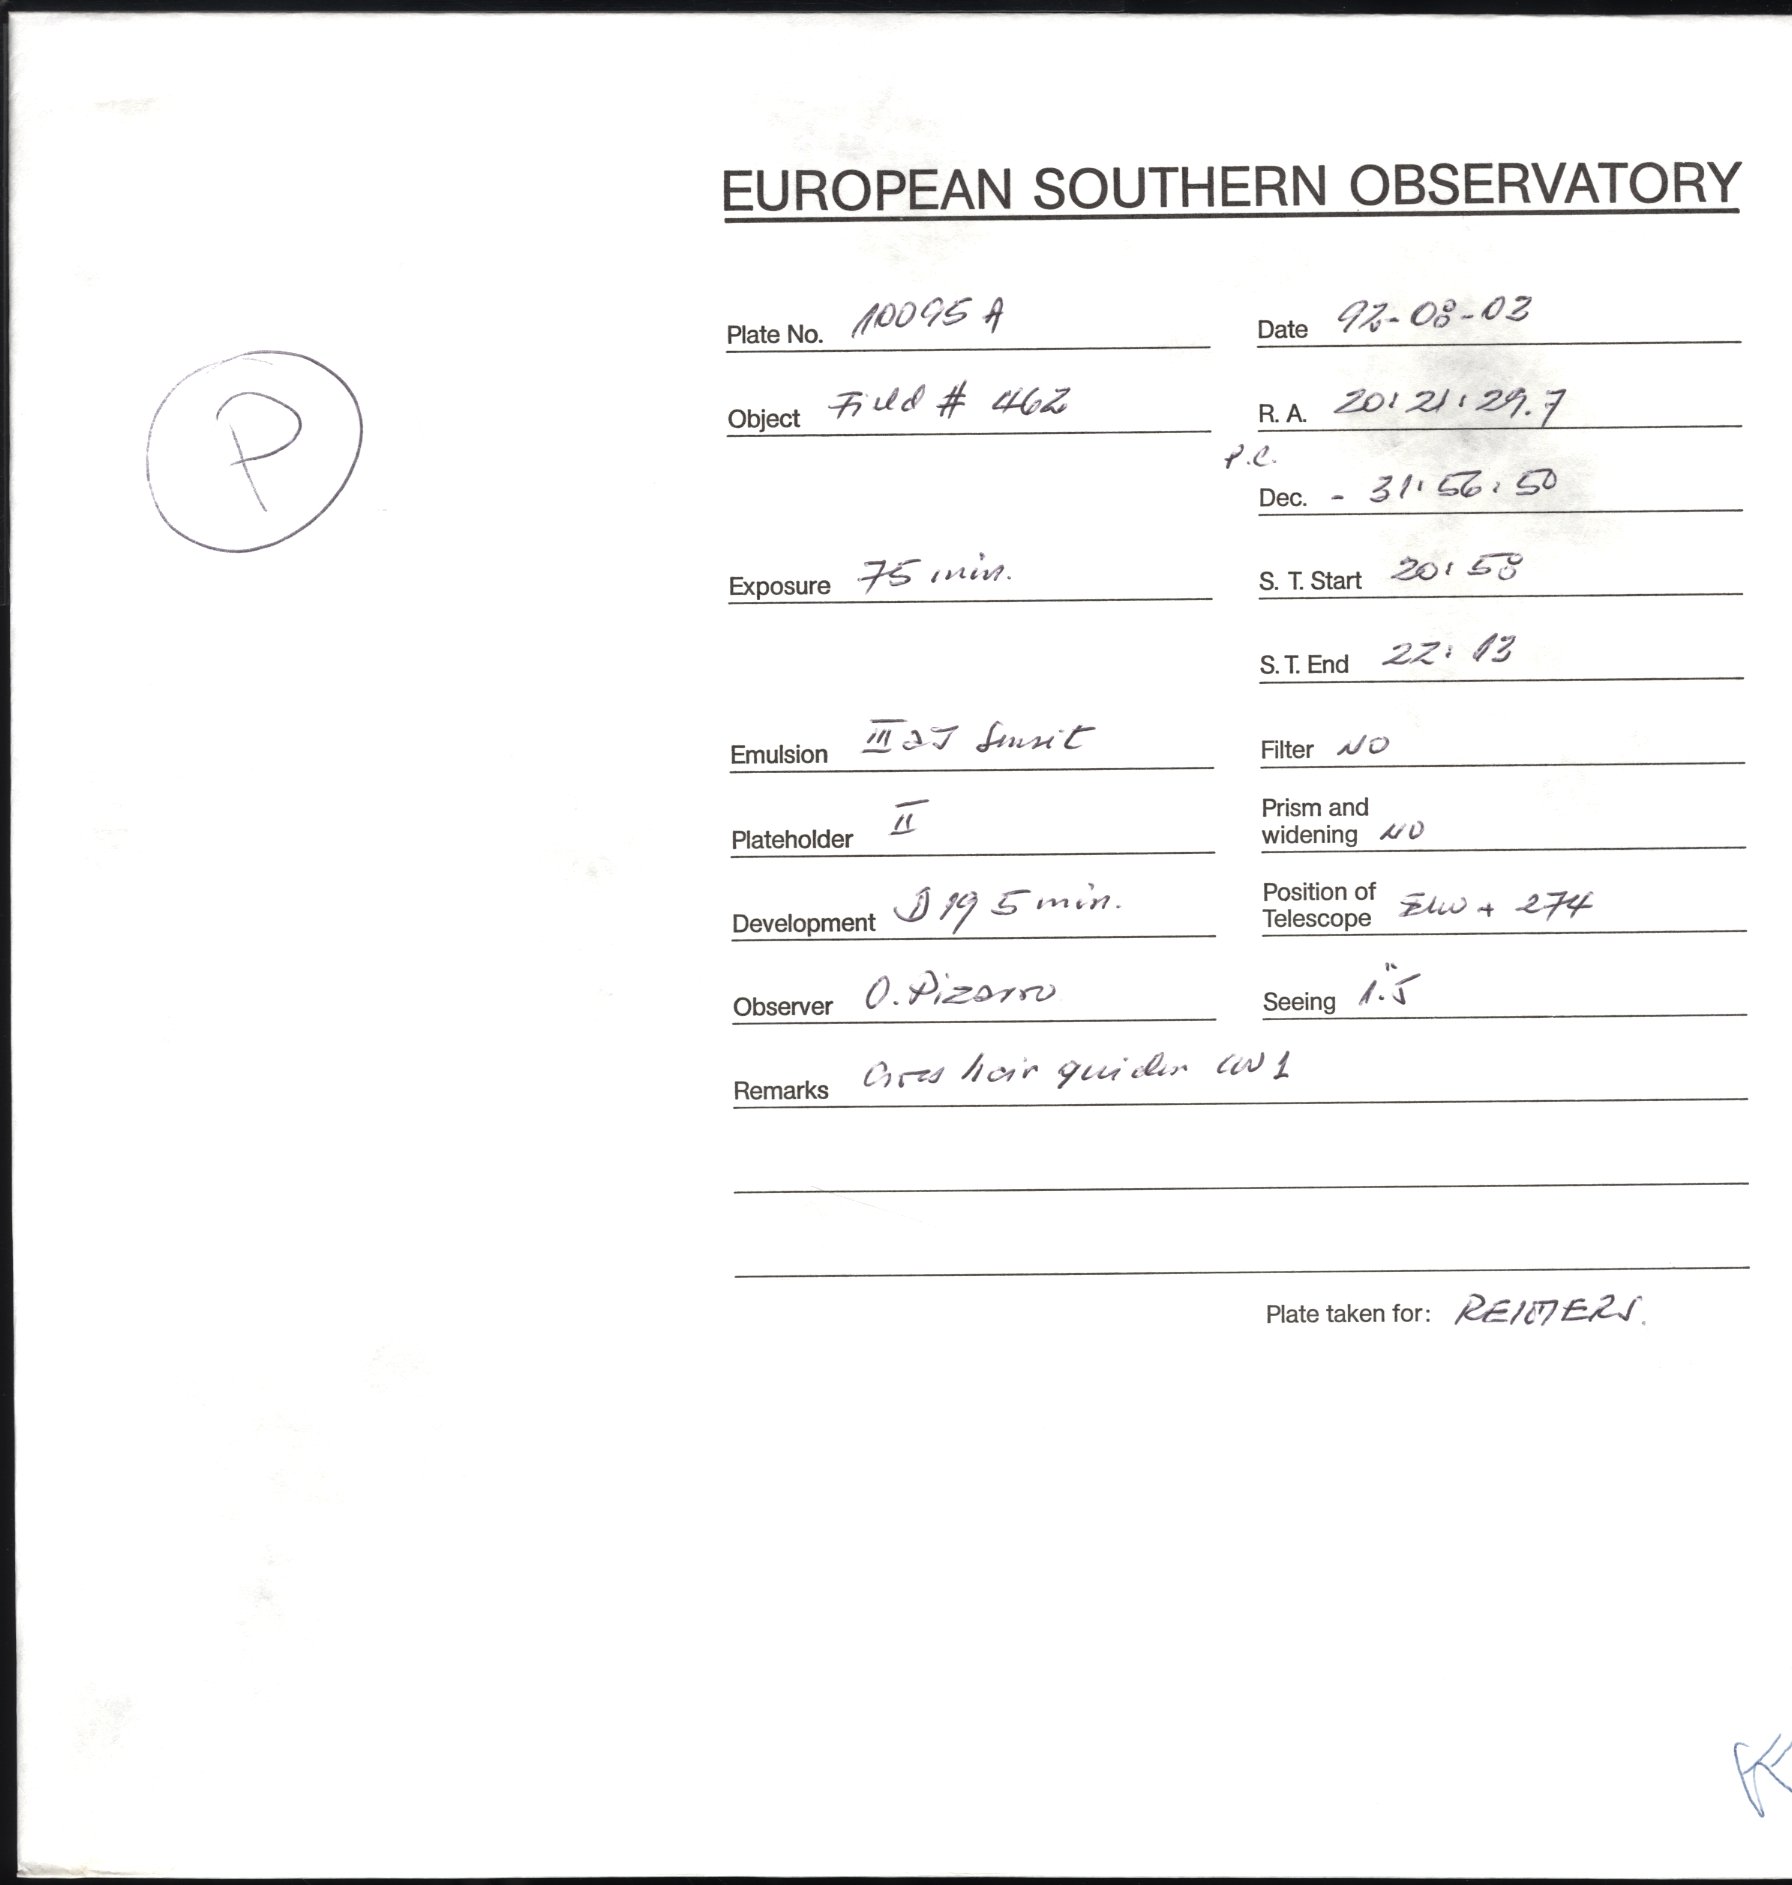 EUROPEAN SOUTHERN OBSERVATORY
Plate No. 10095 A
Date 92-08-03
Object Field # 462
R. A. 20:21:29.7
P.C.
Dec. - 31:56:50
P
Exposure 75 min.
S. T. Start 20:58
S. T. End 22:13
Emulsion III a J Sensit
Filter NO
Plateholder II
Prism and
widening NO
Development D 19 5 min.
Position of
Telescope + 274
Observer O. Pizarro
Seeing 1."5
Remarks Cross hair guider 1
Plate taken for: REIMERS.
K